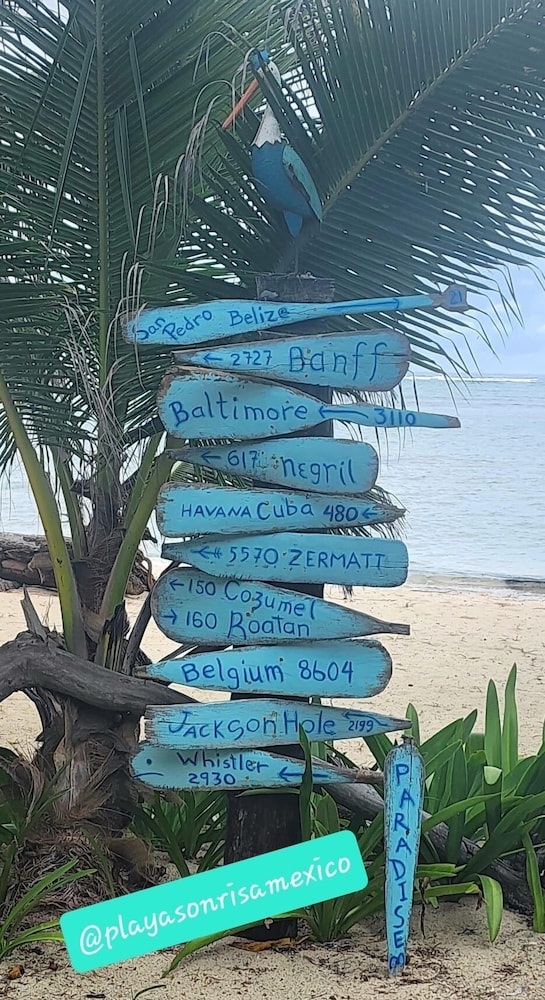 San Pedro Belize 21
← 2727 Banff
Baltimore ← 3110
← 617 negril
HAVANA Cuba 480 ←
← 5570 ZERMATT
← 150 Cozumel
→ 160 Roatan
Belgium 8604
JACKSON Hole ← 2199
Whistler
2930 ←
PARADISE
@playasonrisamexico